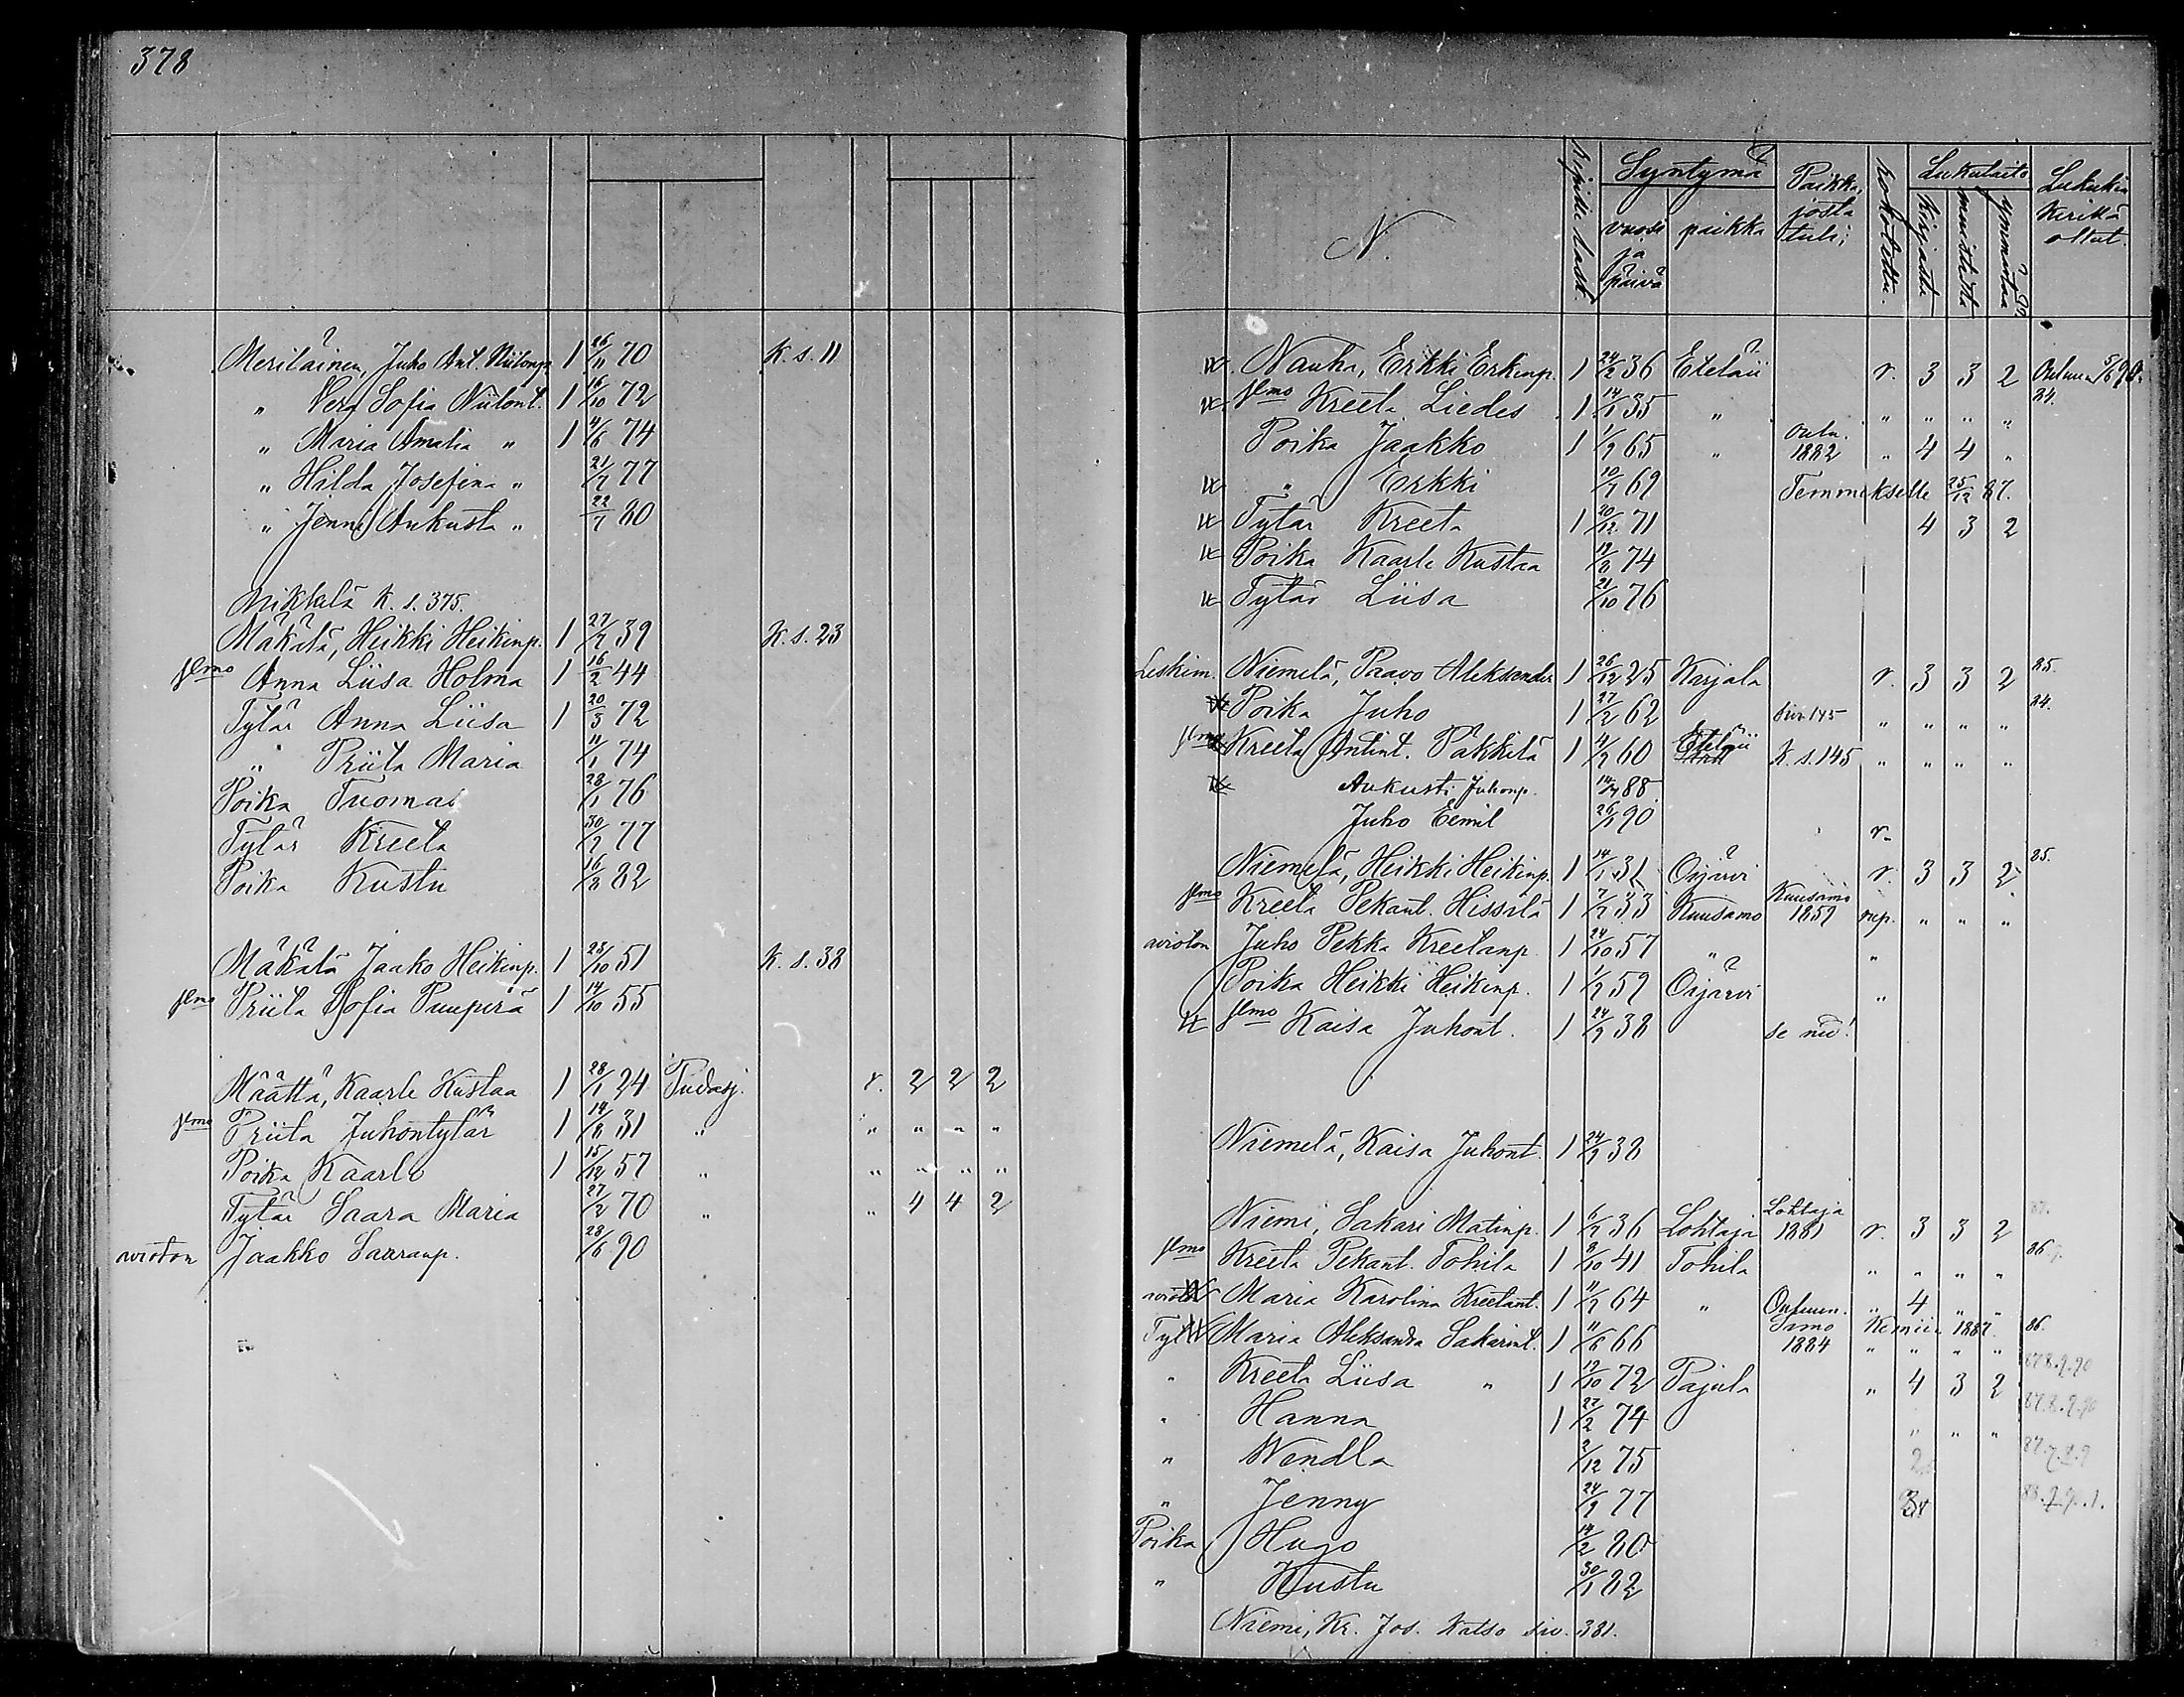 378
Meriläinen, Juho Ant. Niilonp. 1 26/11 70 K. s. 11
" Vera Sofia Niilont. 1 16/10 72
" Maria Amalia " 1 4/6 74
" Hilda Josefina " 21/7 77
" Jenni Aukusta " 22/7 80
Mikkelä K. s. 375.
Mäkelä, Heikki Heikinp. 1 27/7 39 K. s. 23
Anna Liisa Holma 1 16/2 44
Tytär Anna Liisa 1 20/3 72
" Priita Maria 11/1 74
Poika Tuomas 28/1 76
Tytär Kreeta 30/9 77
Poika Kustu 16/8 82
Mäkelä Jaako Heikinp. 1 23/10 51 K. s. 38
Priita Sofia Puuperä 1 14/10 55
Määttä, Kaarle Kustaa 1 28/1 24 Pudasj. r. 2 2 2
Priita Juhontytär 1 14/8 31 " " " " "
Poika Kaarle 1 15/12 57 " " " " "
Tytär Saara Maria 27/2 70 " " 4 4 2
avioton Jaakko Saaranp. 28/6 90
N.
Ripillä lask.
Syntymä
vuosi ja päivä
paikka
Paikka, josta tuli;
rokotettu.
Lukutaito
kirjasta
muistista
ymmärtää
Lukukin
kerillä
ollut.
Nauha, Erkki Erkinp. 1 24/2 36 Eteläii r. 3 3 2 Ouluun
Kreeta Liedes 1 14/1 35 " " " " " 84.
Poika Jaakko 1 1/9 65 " Oulu. 1882 " 4 4 "
" Erkki 10/7 69 Temmekselle 25/12 87.
Tytär Kreeta 1 20/12 71 4 3 2
Poika Kaarle Kustaa 19/8 74
Tytär Liisa 21/10 76
Leskim. Niemelä, Paavo Aleksander 1 26/12 25 Karjala r. 3 3 2 85.
Poika Juho 1 27/2 62 siv. 145 " " " " 84.
Kreeta Antint. Pakkila 1 4/7 60 Eteläii K. s. 145 " " " "
Aukusti Juhonp. 14/7 88
Juho Eemil 26/1 90 r.
Niemelä, Heikki Heikinp. 1 14/1 31 Oijärvi r. 3 3 2 85.
Kreeta Pekant. Hissala 1 7/7 33 Kuusamo Kuusamo 1859 rup. " " "
avioton Juho Pekka Kreetanp. 1 24/10 57 " "
Poika Heikki Heikinp. 1 1/9 59 Oijärvi "
Kaisa Juhont. 1 24/9 38 se ned!
Niemelä, Kaisa Juhont. 1 24/9 38
Niemi, Sakari Matinp. 1 6/7 36 Lohtaja Lohtaja 1881 r. 3 3 2 87.
Kreeta Pekant. Tohila 1 8/10 41 Tohila " " " " 86.
Maria Karolina Kreetant. 1 11/7 64 " Ouluun. " 4 " "
Tyt. Maria Aleksandra Sakarint. 1 11/6 66 Simo 1884 Kemiin 1887. 86.
" Kreeta Liisa " 1 19/10 72 Pajala " 4 3 2 87.8.9.90
" Hanna 1 22/2 74 " " " 87.8.9.90
" Wendla 2/12 75 87.7.8.9
" Jenny 24/9 77
Poika Hugo 14/2 80
" Kustu 30/1 82
Niemi, Kr. Jos. Katso siv. 381.